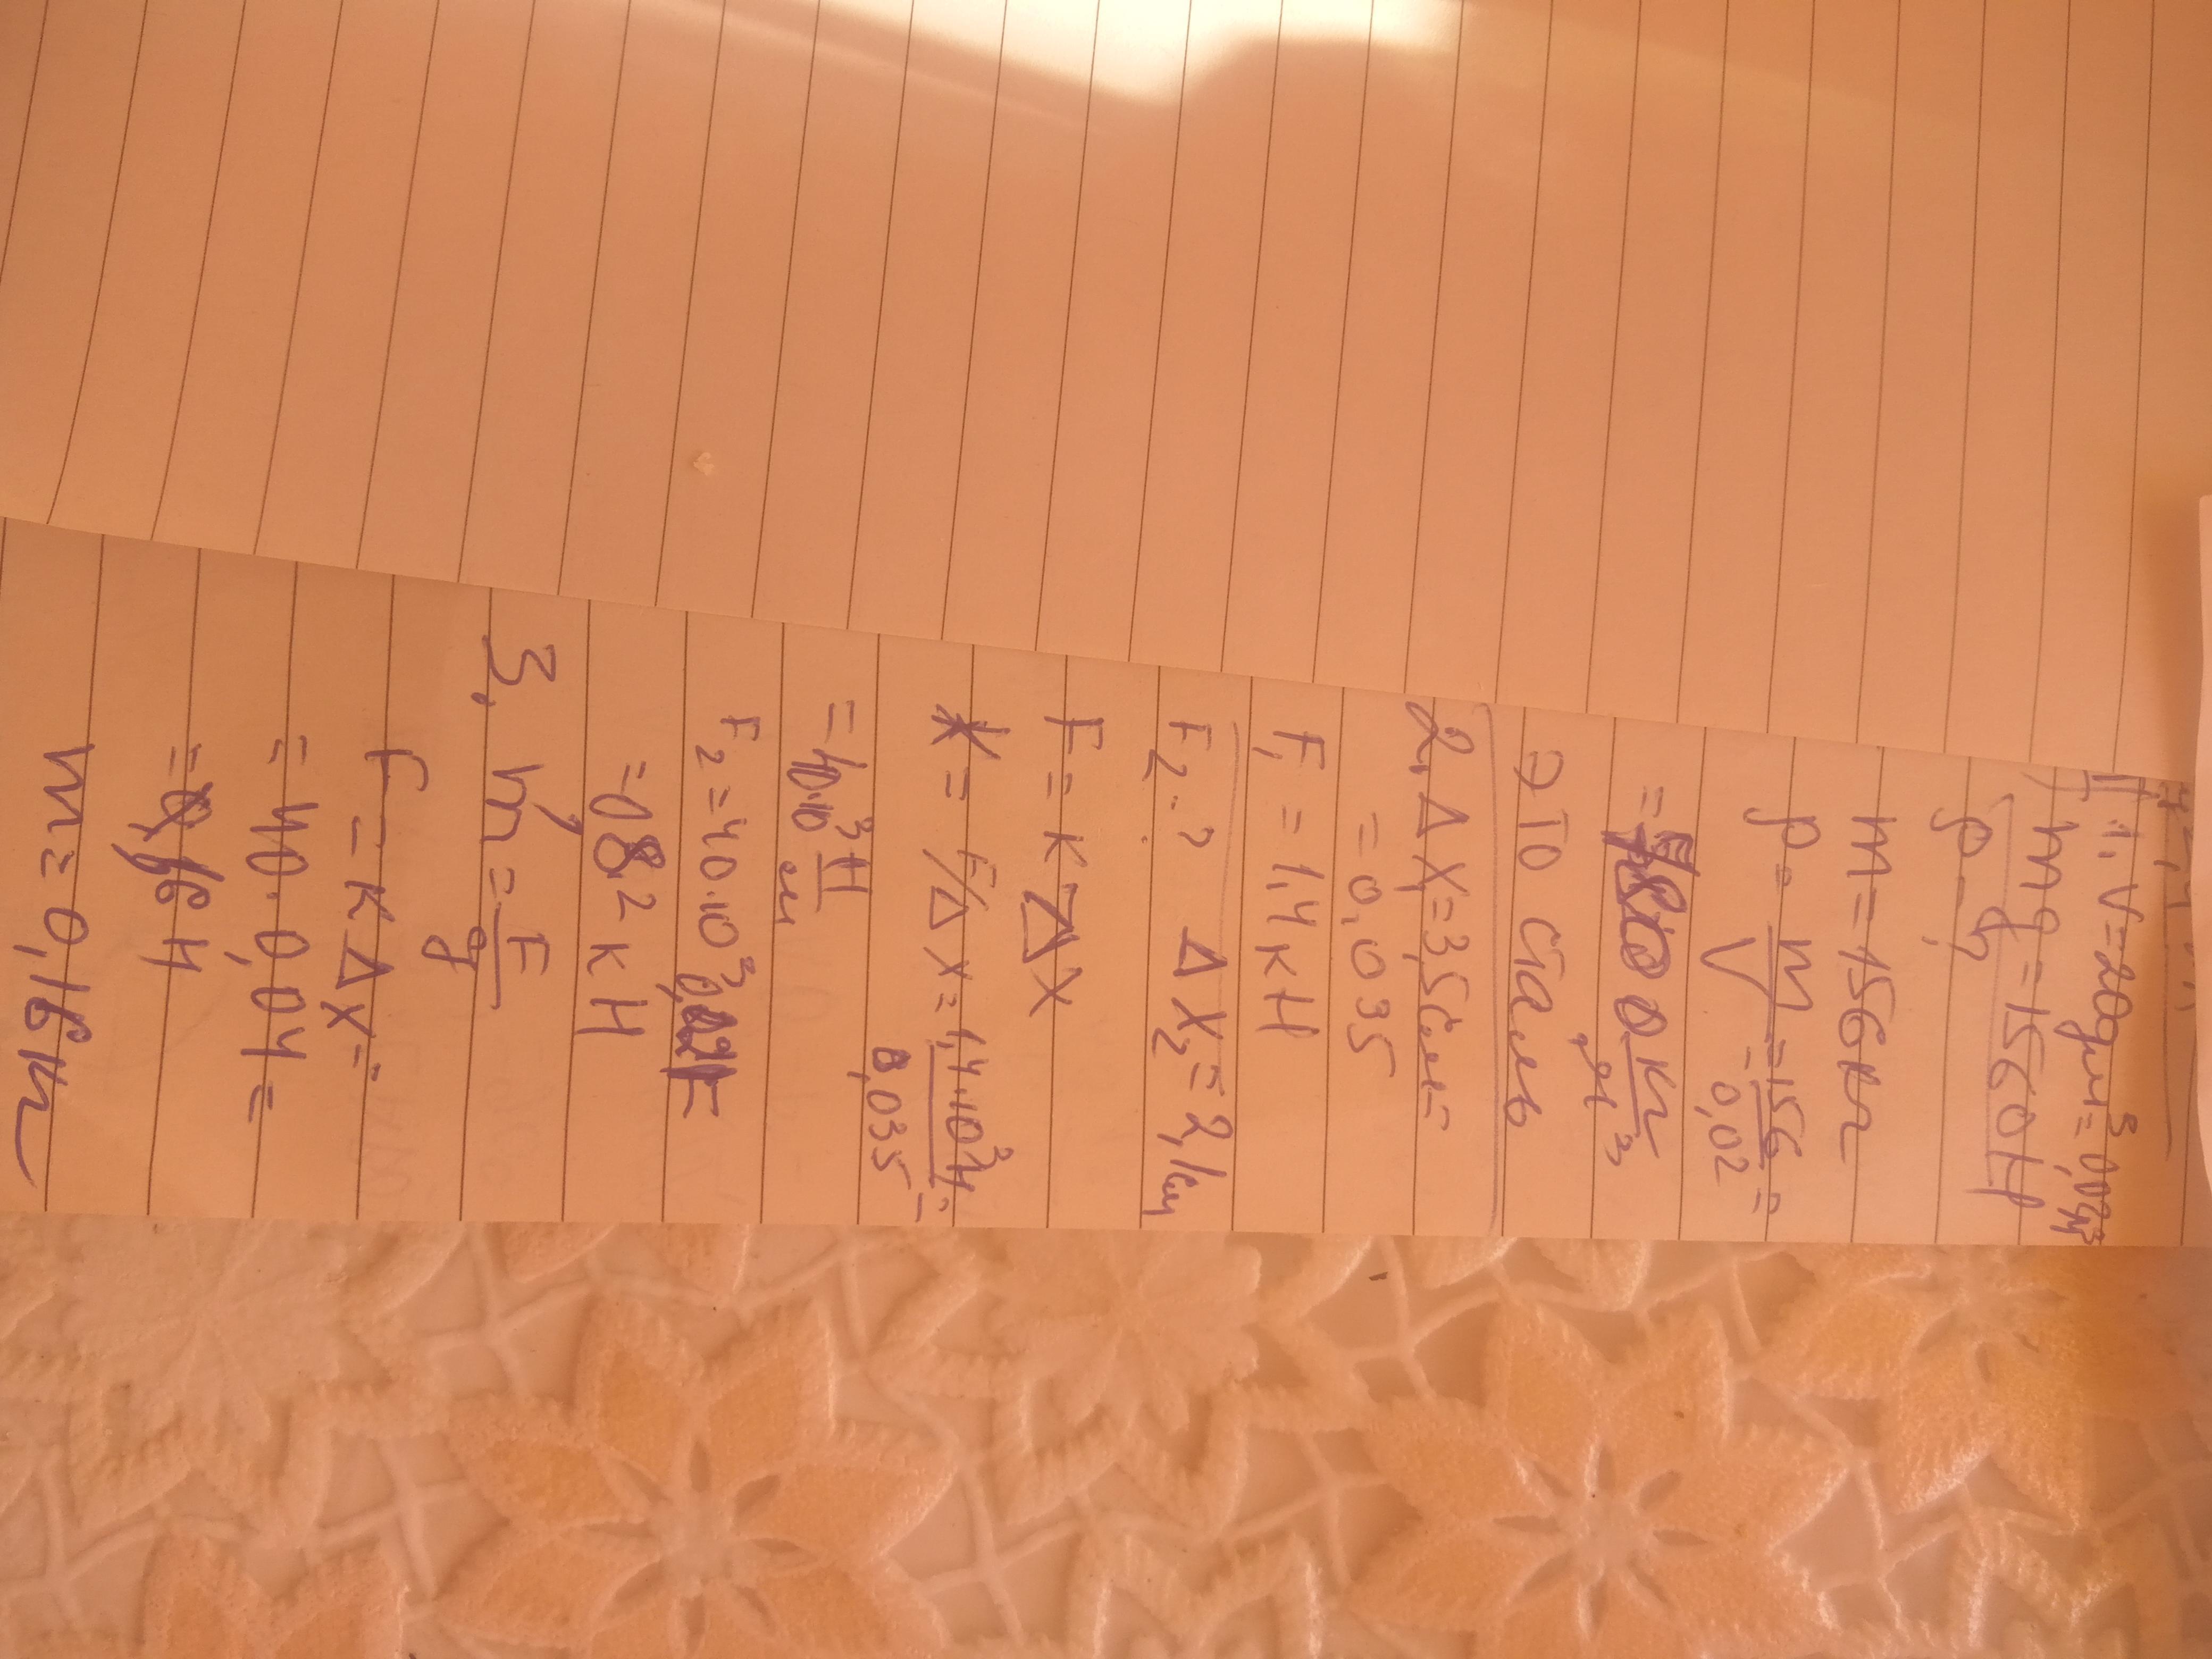 1. V=20дм³=0,02м³
mg=1560Н
ρ-?
m=156кг
ρ=m/V=156/0,02=
=7800 кг/м³
это сталь
2. Δx₁=3,5см=
=0,035
F₁=1,4кН
F₂-? Δx₂=2,1см
F=кΔx
к=F/Δx=1,4·10³Н/0,035=
=40·10³ Н/м
F₂=40·10³·0,021=
=0,82кН
3. m=F/g
F=кΔx=
=40·0,04=
=1,6Н
m=0,16кг